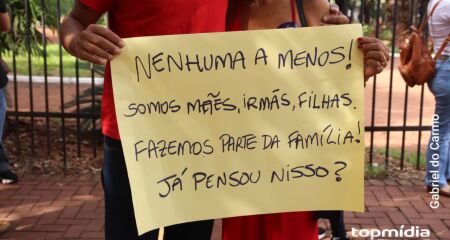 NENHUMA A MENOS!
SOMOS MÃES, IRMÃS, FILHAS.
FAZEMOS PARTE DA FAMÍLIA!
JÁ PENSOU NISSO?
Gabriel do Carmo
topmídia